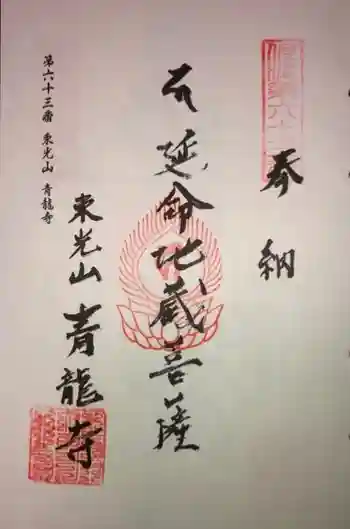 奉納
延命地蔵菩薩
東光山 青龍寺
第六十三番 東光山 青龍寺